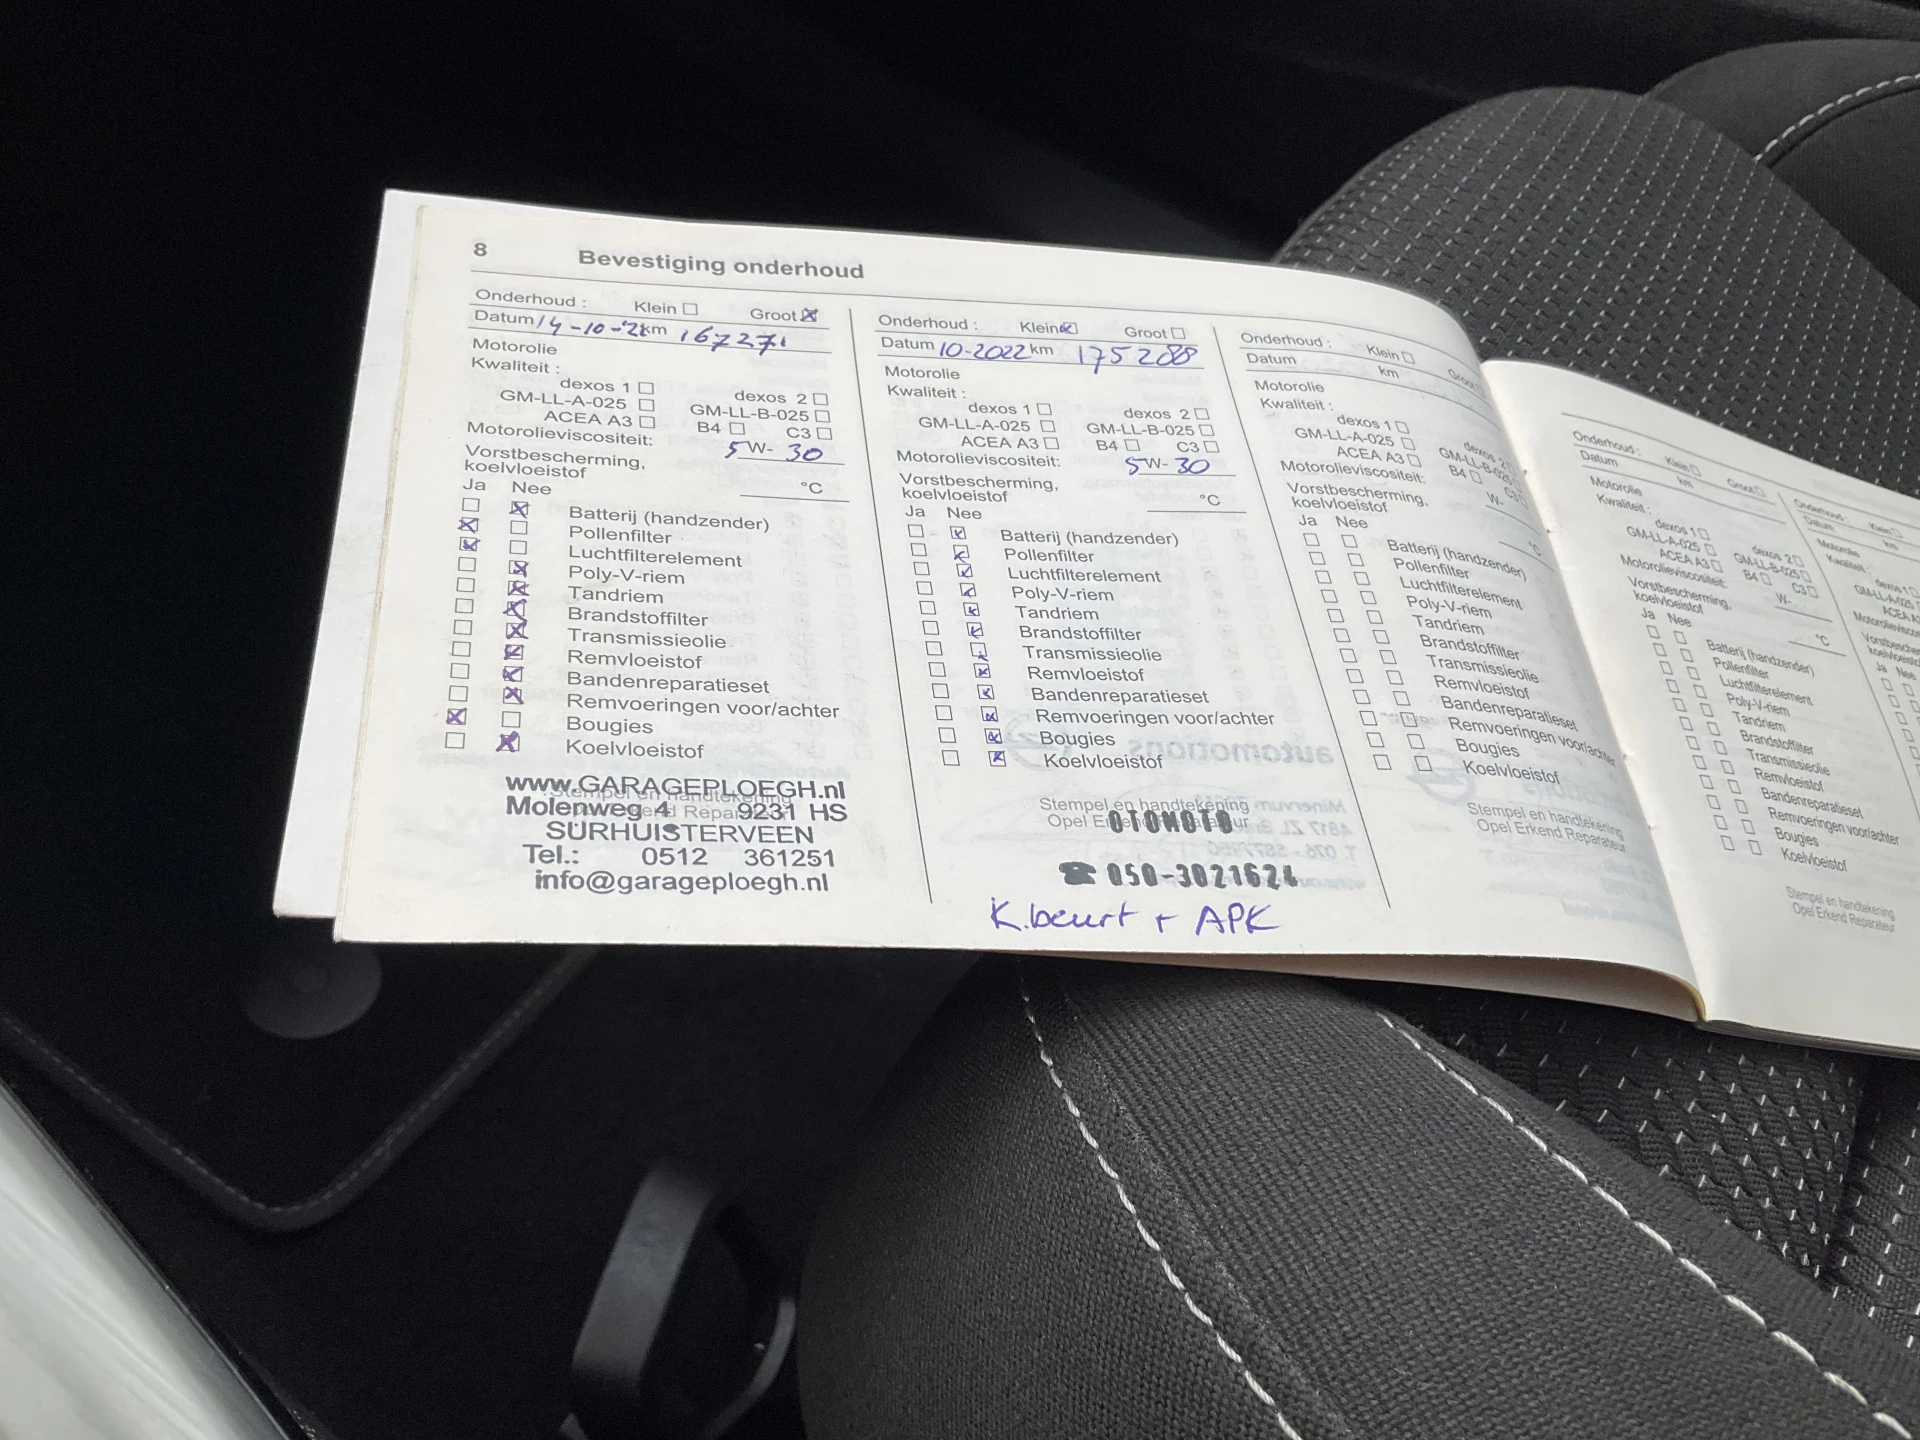 8 Bevestiging onderhoud
Onderhoud : Klein Groot
Datum 14-10-'21 km 167271
Motorolie
Kwaliteit :
dexos 1 dexos 2
GM-LL-A-025 GM-LL-B-025
ACEA A3 B4 C3
Motorolieviscositeit: 5 W- 30
Vorstbescherming,
koelvloeistof °C
Ja Nee
Batterij (handzender)
Pollenfilter
Luchtfilterelement
Poly-V-riem
Tandriem
Brandstoffilter
Transmissieolie
Remvloeistof
Bandenreparatieset
Remvoeringen voor/achter
Bougies
Koelvloeistof
www.GARAGEPLOEGH.nl
Stempel en handtekening
Molenweg 4 9231 HS
SURHUISTERVEEN
Tel.: 0512 361251
info@garageploegh.nl
Onderhoud : Klein Groot
Datum 10-2022 km 175288
Motorolie
Kwaliteit :
dexos 1 dexos 2
GM-LL-A-025 GM-LL-B-025
ACEA A3 B4 C3
Motorolieviscositeit: 5 W- 30
Vorstbescherming,
koelvloeistof °C
Ja Nee
Batterij (handzender)
Pollenfilter
Luchtfilterelement
Poly-V-riem
Tandriem
Brandstoffilter
Transmissieolie
Remvloeistof
Bandenreparatieset
Remvoeringen voor/achter
Bougies
Koelvloeistof
Stempel en handtekening
Opel Erkend Reparateur
OTOMOTO
☎ 050-3021624
K.beurt + APK
Onderhoud : Klein Groot
Datum km
Motorolie
Kwaliteit :
dexos 1 dexos 2
GM-LL-A-025 GM-LL-B-025
ACEA A3 B4 C3
Motorolieviscositeit: W-
Vorstbescherming,
koelvloeistof °C
Ja Nee
Batterij (handzender)
Pollenfilter
Luchtfilterelement
Poly-V-riem
Tandriem
Brandstoffilter
Transmissieolie
Remvloeistof
Bandenreparatieset
Remvoeringen voor/achter
Bougies
Koelvloeistof
Stempel en handtekening
Opel Erkend Reparateur
Onderhoud : Klein Groot
Datum km
Motorolie
Kwaliteit :
dexos 1 dexos 2
GM-LL-A-025 GM-LL-B-025
ACEA A3 B4 C3
Motorolieviscositeit: W-
Vorstbescherming,
koelvloeistof °C
Ja Nee
Batterij (handzender)
Pollenfilter
Luchtfilterelement
Poly-V-riem
Tandriem
Brandstoffilter
Transmissieolie
Remvloeistof
Bandenreparatieset
Remvoeringen voor/achter
Bougies
Koelvloeistof
Stempel en handtekening
Opel Erkend Reparateur
Onderhoud : Klein
Datum km
Motorolie
Kwaliteit :
dexos 1
GM-LL-A-025
Ja Nee